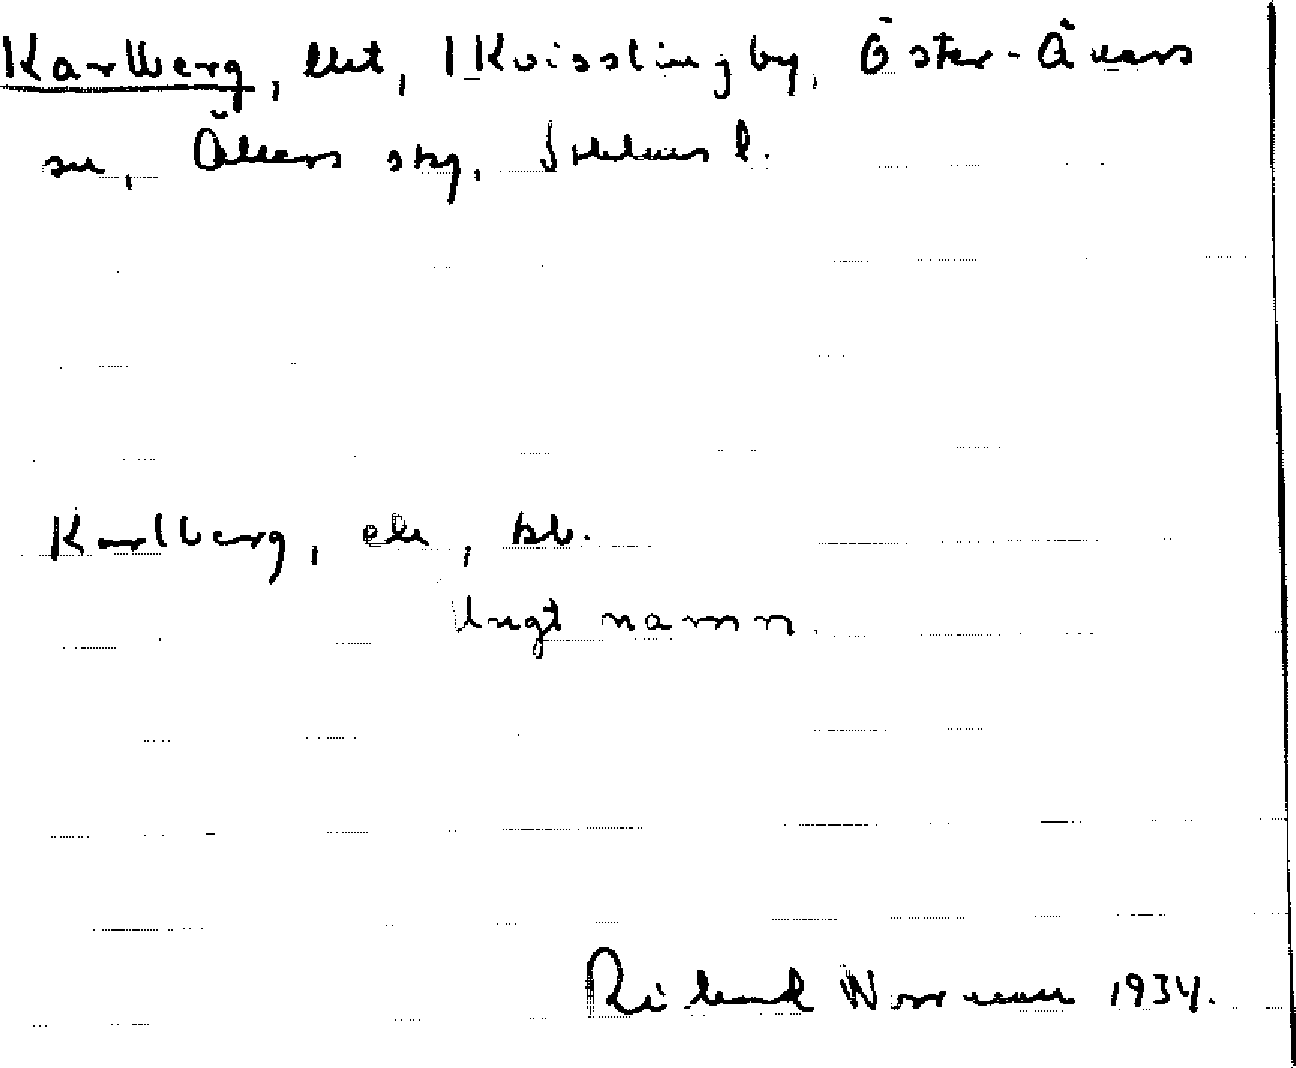 Karlberg, lht, 1 Kvisslingby, Öster-Åkers
sn, Åkers skg, Sthlms l.
Karlberg, ele, bb.
Ungt namn.
Rickard Norrman 1934.